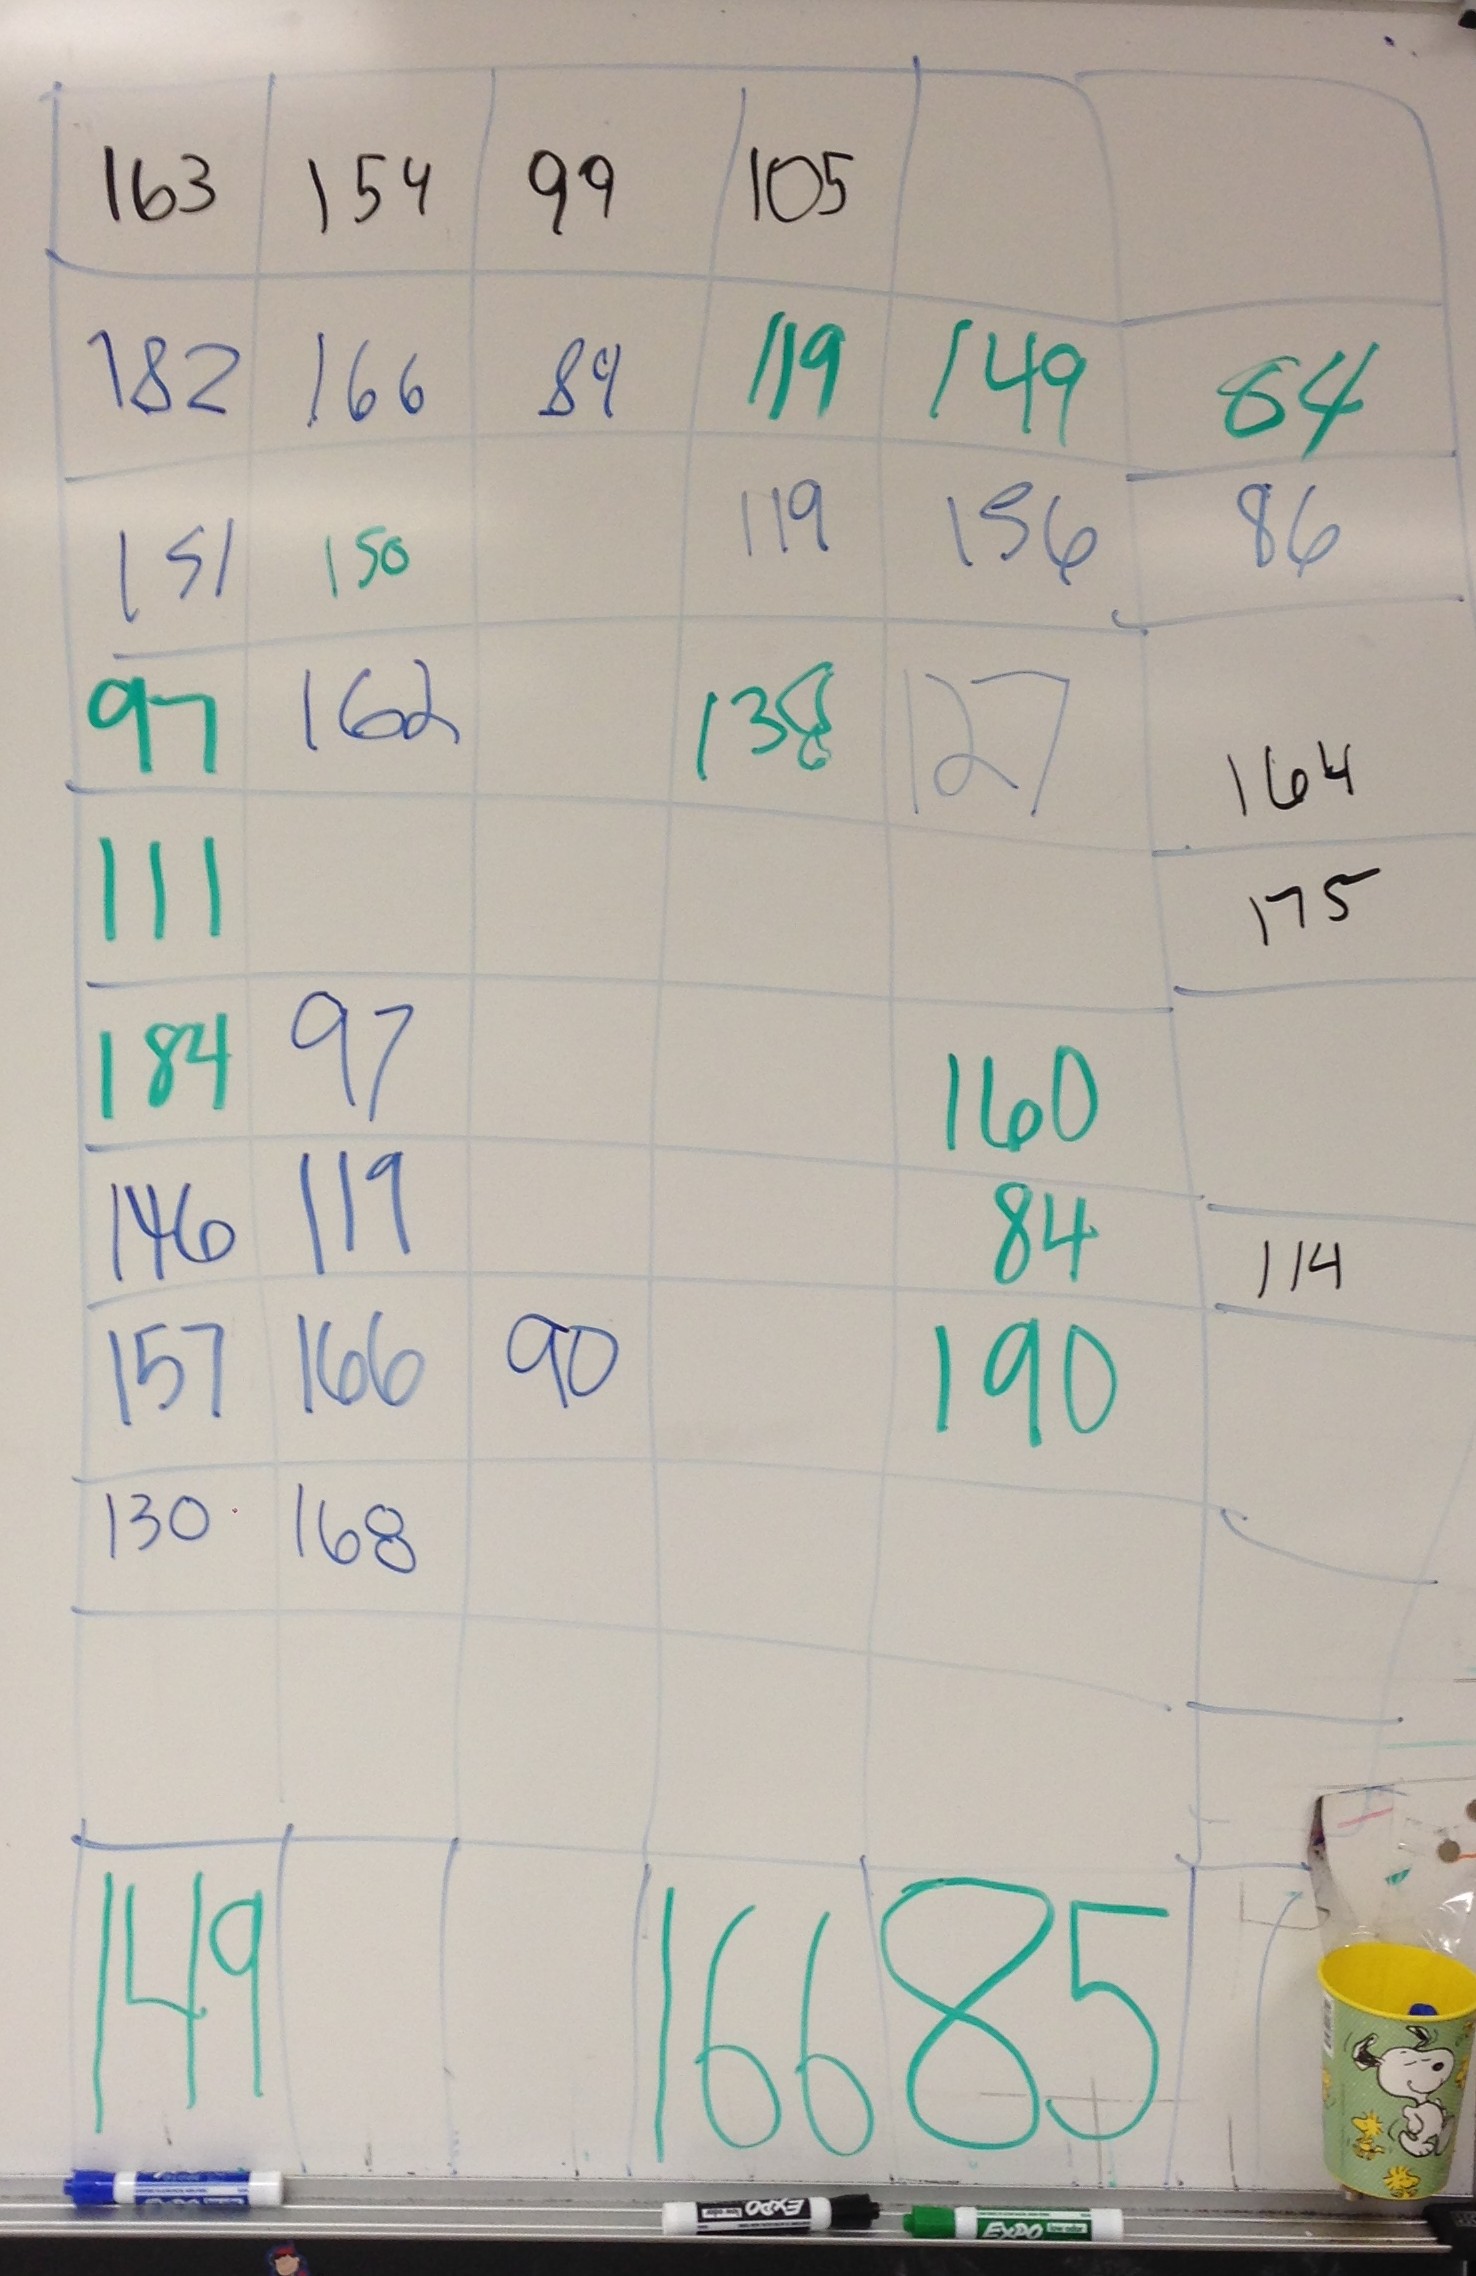 163 154 99 105
182 166 89 119 149 84
151 150 119 156 86
97 162 138 127 164
111 175
184 97 160
146 119 84 114
157 166 90 190
130 168
149 166 85
EXPO low odor EXPO low odor